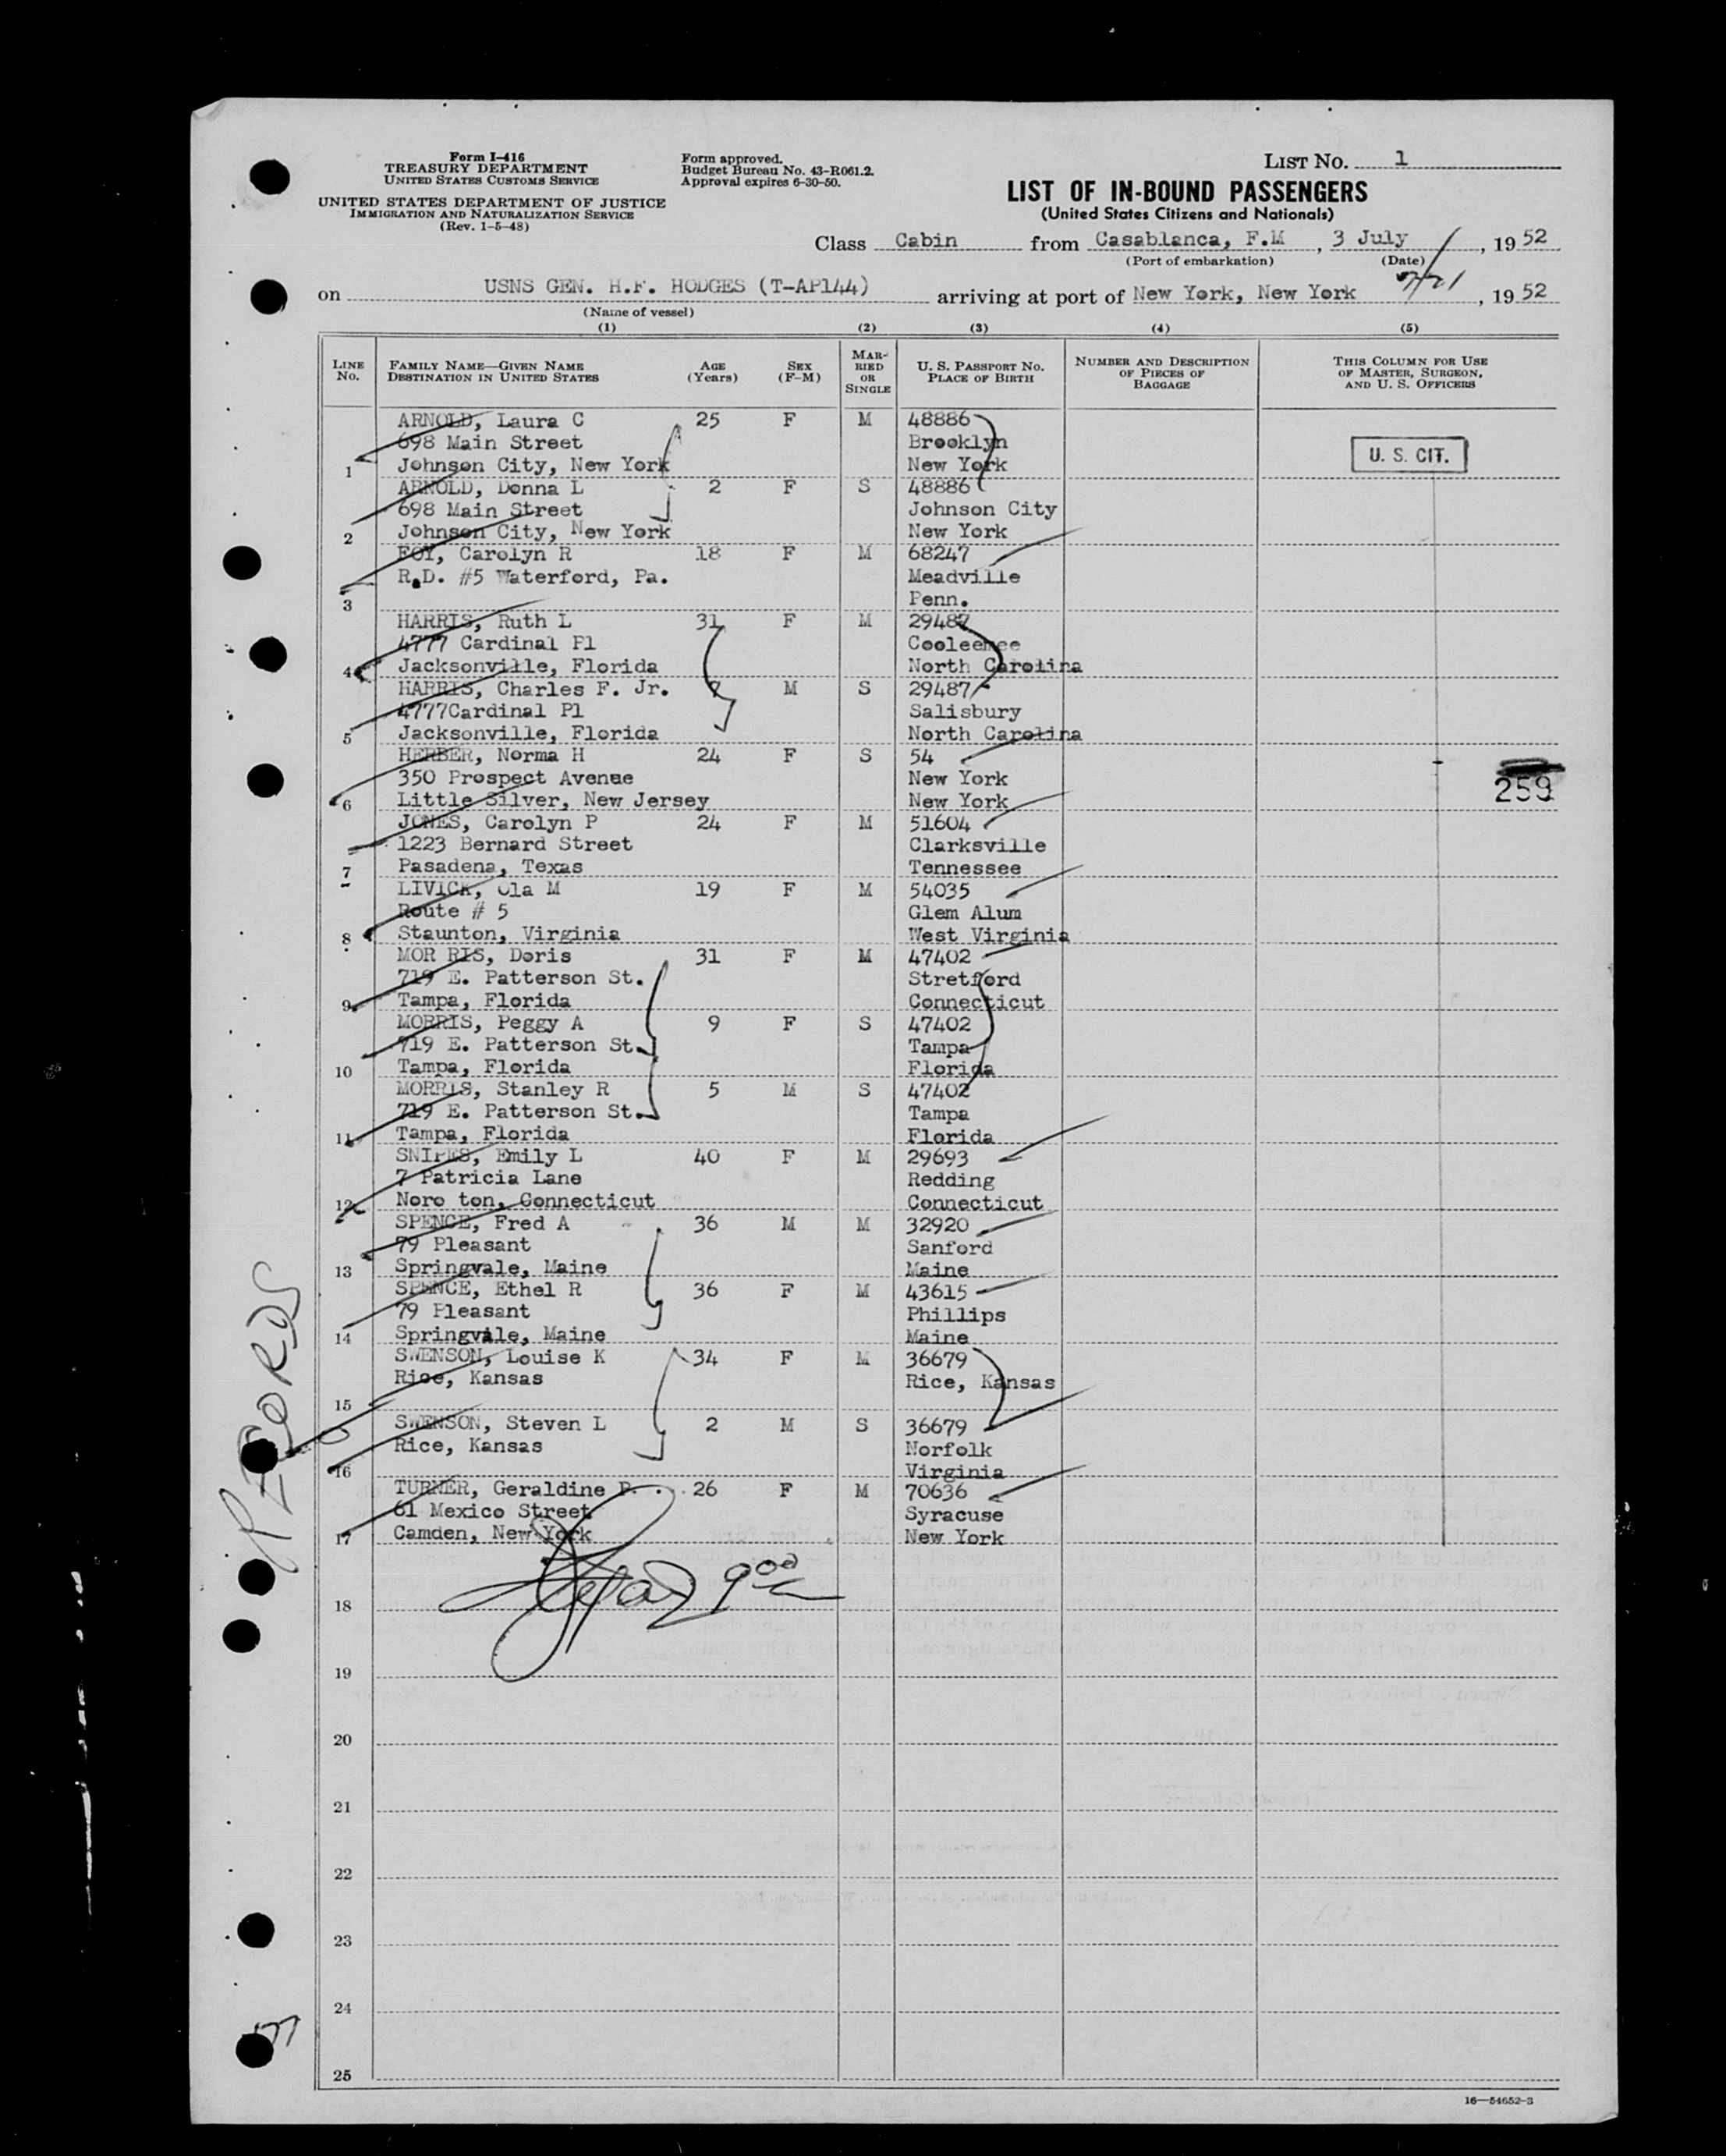 Form I-416
TREASURY DEPARTMENT
UNITED STATES CUSTOMS SERVICE
UNITED STATES DEPARTMENT OF JUSTICE
IMMIGRATION AND NATURALIZATION SERVICE
(Rev. 1-5-48)
Form approved.
Budget Bureau No. 43-R061.2.
Approval expires 6-30-50.
LIST NO. 1
LIST OF IN-BOUND PASSENGERS
(United States Citizens and Nationals)
Class Cabin from Casablanca, F.M , 3 July , 19 52
(Port of embarkation) (Date)
on USNS GEN. H.F. HODGES (T-AP144) arriving at port of New York, New York 7/21 , 19 52
(Name of vessel)
(1) (2) (3) (4) (5)
LINE No. FAMILY NAME—GIVEN NAME DESTINATION IN UNITED STATES AGE (Years) SEX (F-M) MARRIED OR SINGLE U. S. PASSPORT NO. PLACE OF BIRTH NUMBER AND DESCRIPTION OF PIECES OF BAGGAGE THIS COLUMN FOR USE OF MASTER, SURGEON, AND U. S. OFFICERS
ARNOLD, Laura C 25 F M 48886
698 Main Street Brooklyn
U. S. CIT.
1 Johnson City, New York New York
ARNOLD, Donna L 2 F S 48886
698 Main Street Johnson City
2 Johnson City, New York New York
FOY, Carolyn R 18 F M 68247
R.D. #5 Waterford, Pa. Meadville
3 Penn.
HARRIS, Ruth L 31 F M 29487
4777 Cardinal Pl Cooleemee
4 Jacksonville, Florida North Carolina
HARRIS, Charles F. Jr. M S 29487
4777Cardinal Pl Salisbury
5 Jacksonville, Florida North Carolina
HERBER, Norma H 24 F S 54
350 Prospect Avenue New York
6 Little Silver, New Jersey New York
259
JONES, Carolyn P 24 F M 51604
1223 Bernard Street Clarksville
7 Pasadena, Texas Tennessee
LIVICK, Ola M 19 F M 54035
Route # 5 Glem Alum
8 Staunton, Virginia West Virginia
MOR RIS, Doris 31 F M 47402
719 E. Patterson St. Stretford
9 Tampa, Florida Connecticut
MORRIS, Peggy A 9 F S 47402
719 E. Patterson St. Tampa
10 Tampa, Florida Florida
MORRIS, Stanley R 5 M S 47402
719 E. Patterson St. Tampa
11 Tampa, Florida Florida
SNIPES, Emily L 40 F M 29693
7 Patricia Lane Redding
12 Noro ton, Connecticut Connecticut
SPENCE, Fred A 36 M M 32920
79 Pleasant Sanford
13 Springvale, Maine Maine
SPENCE, Ethel R 36 F M 43615
79 Pleasant Phillips
14 Springvale, Maine Maine
SWENSON, Louise K 34 F M 36679
Rice, Kansas Rice, Kansas
15
SWENSON, Steven L 2 M S 36679
Rice, Kansas Norfolk
16 Virginia
TURNER, Geraldine P. 26 F M 70636
61 Mexico Street Syracuse
17 Camden, New York New York
18
19
20
21
22
23
24
25
16—54652-3